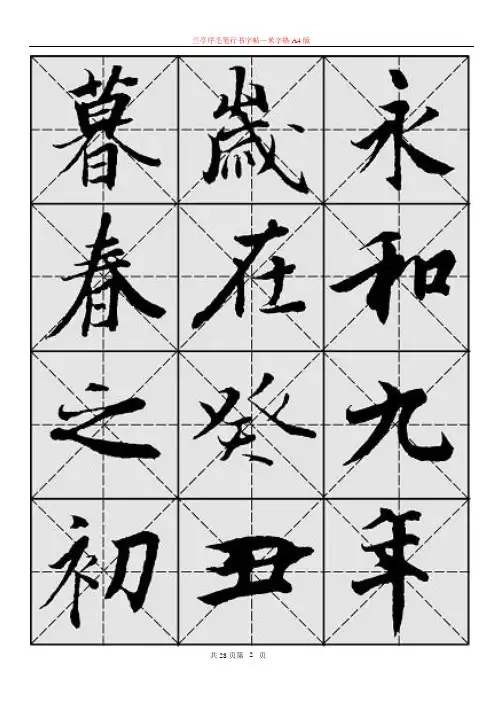 兰亭序毛笔行书字帖—米字格A4版
永和九年
歲在癸丑
暮春之初
共28页第 2 页